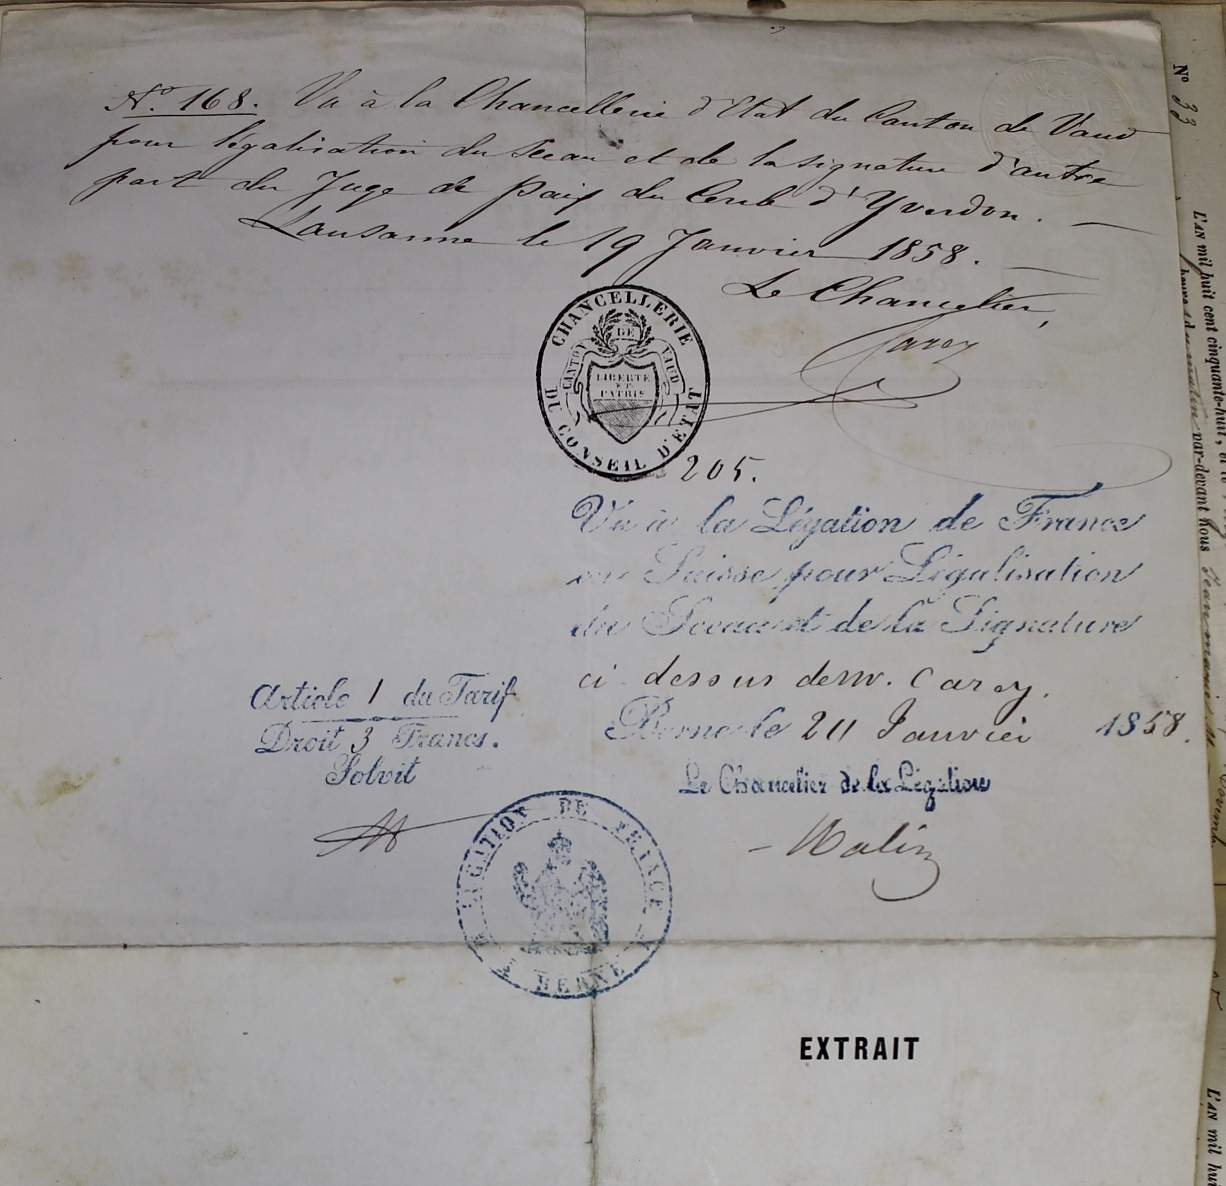 N.º 168. Vu à la Chancellerie d'Etat du Canton de Vaud
pour légalisation du Sceau et de la signature d'autre
part du Juge de Paix du Cercle d'Yverdon.
Lausanne le 19 Janvier 1858.
Le Chancelier,
Carey
CHANCELLERIE
DU CONSEIL D'ETAT
CANTON DE VAUD
LIBERTÉ
ET
PATRIE
205.
Vu à la Légation de France
en Suisse pour Légalisation
du Sceau et de la Signature
ci dessus de M. Carey.
Berne le 20 Janvier 1858.
Le Chancelier de la Légation
Article 1 du Tarif
Droit 3 Francs.
Solvit
LEGATION DE FRANCE
A BERNE
EXTRAIT
Nº 33
L'AN mil huit cent cinquante-huit, et le
par-devant nous
L'AN mil hui